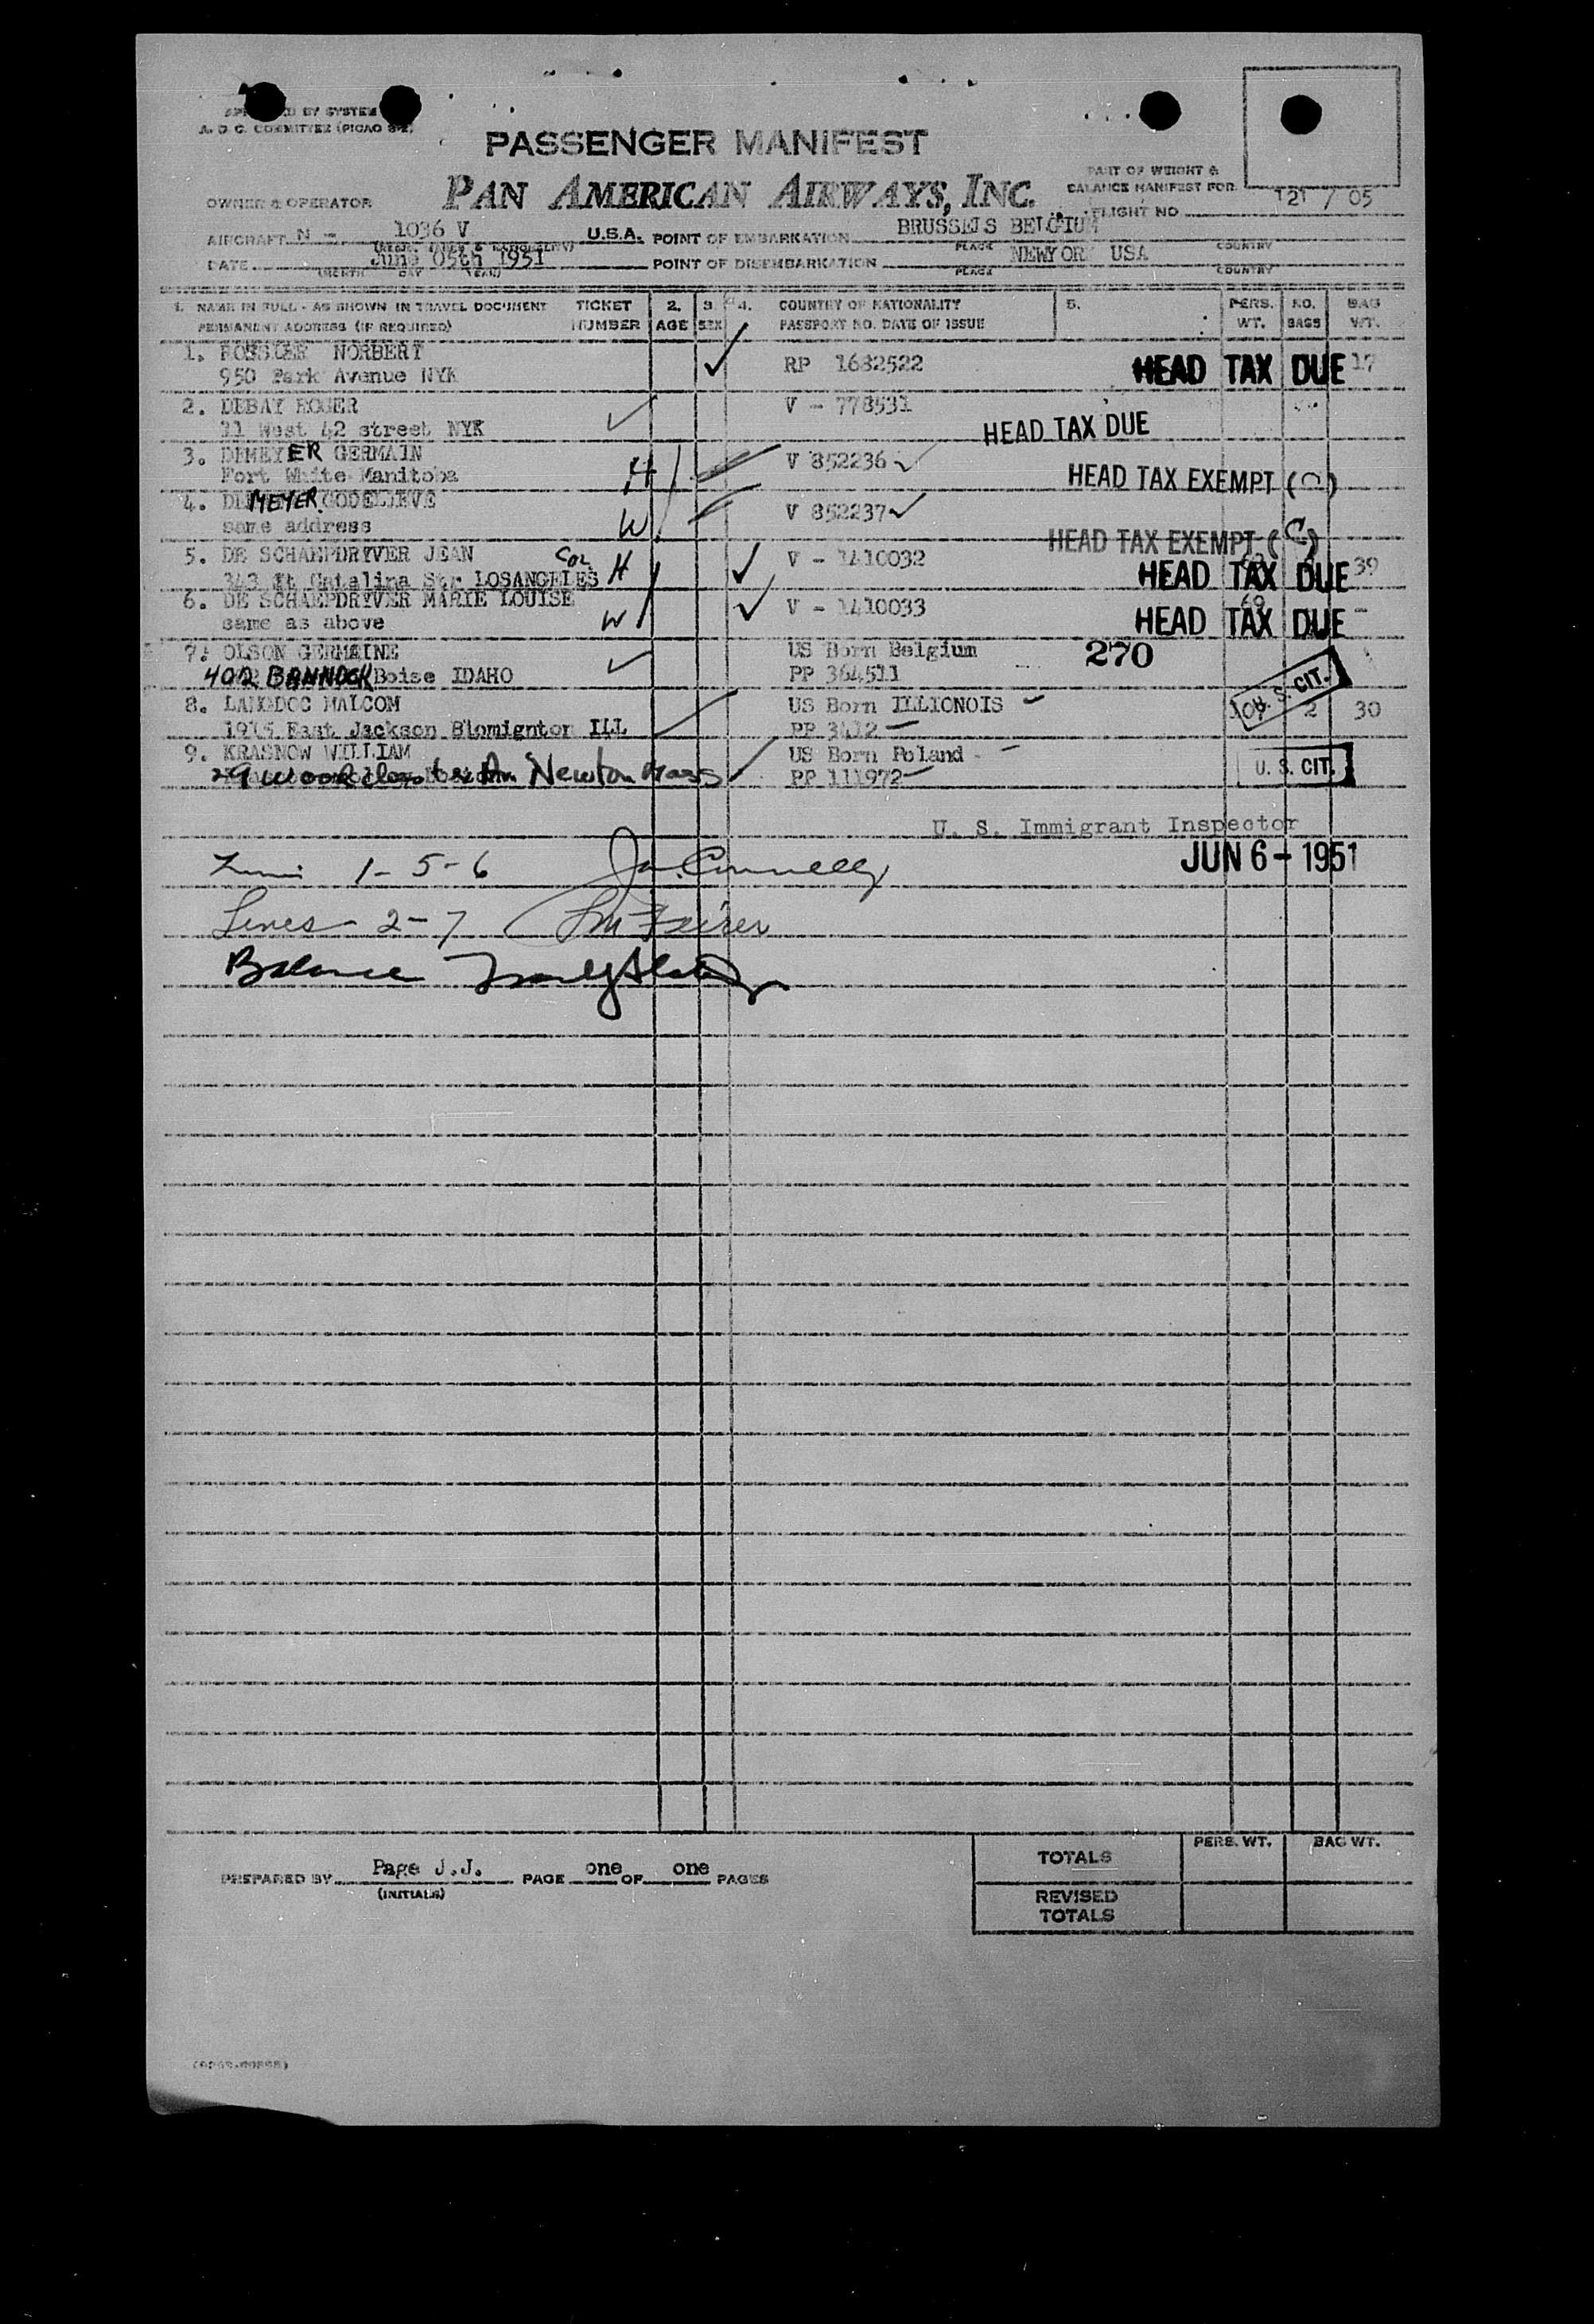 BY SYSTEM
A. O C. COMMITTEE (PICAO 8-2)
PASSENGER MANIFEST
PART OF WEIGHT &
BALANCE MANIFEST FOR
PAN AMERICAN AIRWAYS, INC.
OWNER & OPERATOR
FLIGHT NO 121 / 05
AIRCRAFT N - 1036 V U.S.A. POINT OF EMBARKATION BRUSSELS BELGIUM
PLACE COUNTRY
DATE June 05th 1951 POINT OF DISEMBARKATION NEWYOR USA
(MONTH DAY YEAR) PLACE COUNTRY
1. NAME IN FULL - AS SHOWN IN TRAVEL DOCUMENT TICKET 2. 3. 4. COUNTRY OF NATIONALITY 5. PERS. NO. BAG
PERMANENT ADDRESS (IF REQUIRED) NUMBER AGE SEX PASSPORT NO. DATE OF ISSUE WT. BAGS WT.
1. NORBERT
950 Park Avenue NYK RP 1682522 HEAD TAX DUE 17
2. DEBAY ROGER V - 778531
11 West 42 street NYK HEAD TAX DUE
3. DEMEYER GERMAIN V 852236
Fort White Manitoba H HEAD TAX EXEMPT (C)
4. MEYER GODELIEVE V 852237
same address W HEAD TAX EXEMPT (C)
5. DE SCHAEPDRYVER JEAN V - 1410032 39
343 Catalina Str LOSANGELES Cal H HEAD TAX DUE
6. DE SCHAEPDRYVER MARIE LOUISE V - 1410033 69 -
same as above W HEAD TAX DUE
7. OLSON GERMAINE US Born Belgium 270
402 BANNOCK Boise IDAHO PP 364511 U. S. CIT.
8. LANGDOC MALCOM US Born ILLIONOIS 2 30
East Jackson Blomigntor ILL PP 3412
9. KRASNOW WILLIAM US Born Poland
29 Newton Mass PP 111972 U. S. CIT.
U. S. Immigrant Inspector
1-5-6 Connelly JUN 6 - 1951
Lines 2-7
Balance
PREPARED BY Page J.J. PAGE one OF one PAGES
(INITIALS)
PERS. WT. BAG WT.
TOTALS
REVISED
TOTALS